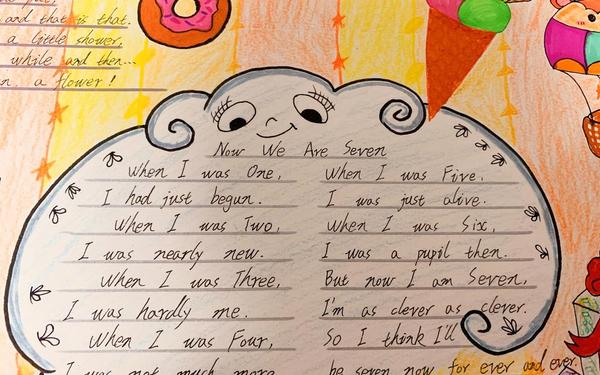 and that is that.
a little shower,
while and then...
a flower!
Now We Are Seven
When I was One,
I had just begun.
When I was Two,
I was nearly new.
When I was Three,
I was hardly me.
When I was Four,
I was not much more
When I was Five,
I was just alive.
When I was Six,
I was a pupil then.
But now I am Seven,
I'm as clever as clever.
So I think I'll
be seven now for ever and ever.